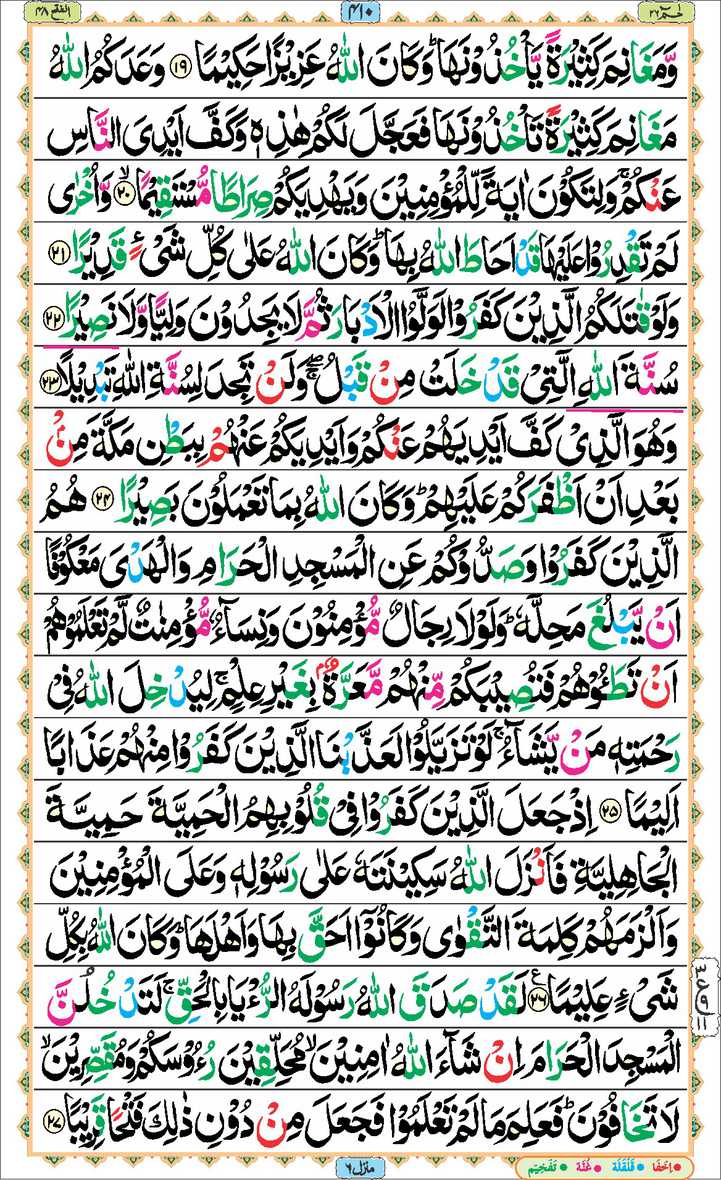 الفتح ٤٨
٤١٠
حٰمٓ ٢٦
وَّمَغَانِمَ كَثِيْرَةً يَّاْخُذُوْنَهَا ؕ وَكَانَ اللّٰهُ عَزِيْزًا حَكِيْمًا ۝١٩ وَعَدَكُمُ اللّٰهُ
مَغَانِمَ كَثِيْرَةً تَاْخُذُوْنَهَا فَعَجَّلَ لَكُمْ هٰذِهٖ وَكَفَّ اَيْدِيَ النَّاسِ
عَنْكُمْ ۚ وَلِتَكُوْنَ اٰيَةً لِّلْمُؤْمِنِيْنَ وَيَهْدِيَكُمْ صِرَاطًا مُّسْتَقِيْمًا ۝٢٠ۙ وَّاُخْرٰى
لَمْ تَقْدِرُوْا عَلَيْهَا قَدْ اَحَاطَ اللّٰهُ بِهَا ؕ وَكَانَ اللّٰهُ عَلٰى كُلِّ شَيْءٍ قَدِيْرًا ۝٢١
وَلَوْ قٰتَلَكُمُ الَّذِيْنَ كَفَرُوْا لَوَلَّوُا الْاَدْبَارَ ثُمَّ لَا يَجِدُوْنَ وَلِيًّا وَّلَا نَصِيْرًا ۝٢٢
سُنَّةَ اللّٰهِ الَّتِيْ قَدْ خَلَتْ مِنْ قَبْلُ ۖۚ وَلَنْ تَجِدَ لِسُنَّةِ اللّٰهِ تَبْدِيْلًا ۝٢٣
وَهُوَ الَّذِيْ كَفَّ اَيْدِيَهُمْ عَنْكُمْ وَاَيْدِيَكُمْ عَنْهُمْ بِبَطْنِ مَكَّةَ مِنْۢ
بَعْدِ اَنْ اَظْفَرَكُمْ عَلَيْهِمْ ؕ وَكَانَ اللّٰهُ بِمَا تَعْمَلُوْنَ بَصِيْرًا ۝٢٤ هُمُ
الَّذِيْنَ كَفَرُوْا وَصَدُّوْكُمْ عَنِ الْمَسْجِدِ الْحَرَامِ وَالْهَدْيَ مَعْكُوْفًا
اَنْ يَّبْلُغَ مَحِلَّهٗ ؕ وَلَوْلَا رِجَالٌ مُّؤْمِنُوْنَ وَنِسَآءٌ مُّؤْمِنٰتٌ لَّمْ تَعْلَمُوْهُمْ
اَنْ تَطَـُٔوْهُمْ فَتُصِيْبَكُمْ مِّنْهُمْ مَّعَرَّةٌۢ بِغَيْرِ عِلْمٍ ۚ لِيُدْخِلَ اللّٰهُ فِيْ
رَحْمَتِهٖ مَنْ يَّشَآءُ ۚ لَوْ تَزَيَّلُوْا لَعَذَّبْنَا الَّذِيْنَ كَفَرُوْا مِنْهُمْ عَذَابًا
اَلِيْمًا ۝٢٥ اِذْ جَعَلَ الَّذِيْنَ كَفَرُوْا فِيْ قُلُوْبِهِمُ الْحَمِيَّةَ حَمِيَّةَ
الْجَاهِلِيَّةِ فَاَنْزَلَ اللّٰهُ سَكِيْنَتَهٗ عَلٰى رَسُوْلِهٖ وَعَلَى الْمُؤْمِنِيْنَ
وَاَلْزَمَهُمْ كَلِمَةَ التَّقْوٰى وَكَانُوْٓا اَحَقَّ بِهَا وَاَهْلَهَا ؕ وَكَانَ اللّٰهُ بِكُلِّ
شَيْءٍ عَلِيْمًا ۝٢٦ لَقَدْ صَدَقَ اللّٰهُ رَسُوْلَهُ الرُّءْيَا بِالْحَقِّ ۚ لَتَدْخُلُنَّ
الْمَسْجِدَ الْحَرَامَ اِنْ شَآءَ اللّٰهُ اٰمِنِيْنَ ۙ مُحَلِّقِيْنَ رُءُوْسَكُمْ وَمُقَصِّرِيْنَ ۙ
لَا تَخَافُوْنَ ؕ فَعَلِمَ مَا لَمْ تَعْلَمُوْا فَجَعَلَ مِنْ دُوْنِ ذٰلِكَ فَتْحًا قَرِيْبًا ۝٢٧
منزل ٦
اِخفَا • قَلْقَلَة • غُنَّة • تَفْخِيْم •